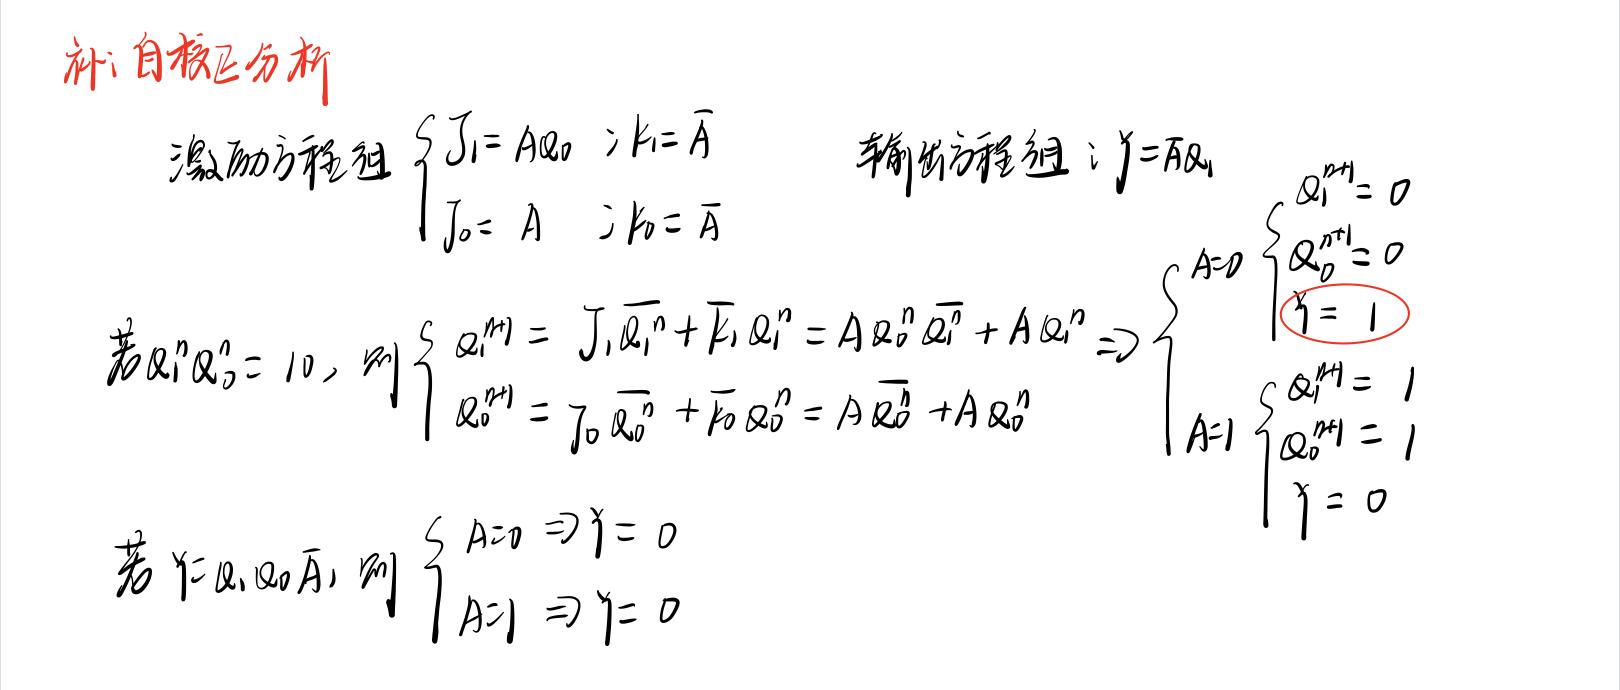 补:自校正分析
激励方程组 { J₁ = AQ₀ ; K₁ = A̅
J₀ = A ; K₀ = A̅
输出方程组 : Y = A̅Q₁
若 Q₁ⁿQ₀ⁿ = 10, 则 { Q₁ⁿ⁺¹ = J₁\overline{Q₁ⁿ} + \overline{K₁}Q₁ⁿ = AQ₀ⁿ\overline{Q₁ⁿ} + AQ₁ⁿ
Q₀ⁿ⁺¹ = J₀\overline{Q₀ⁿ} + \overline{K₀}Q₀ⁿ = A\overline{Q₀ⁿ} + AQ₀ⁿ
⇒ { A=0 { Q₁ⁿ⁺¹ = 0
Q₀ⁿ⁺¹ = 0
Y = 1
A=1 { Q₁ⁿ⁺¹ = 1
Q₀ⁿ⁺¹ = 1
Y = 0
若 Y = Q₁Q₀A̅, 则 { A=0 ⇒ Y = 0
A=1 ⇒ Y = 0